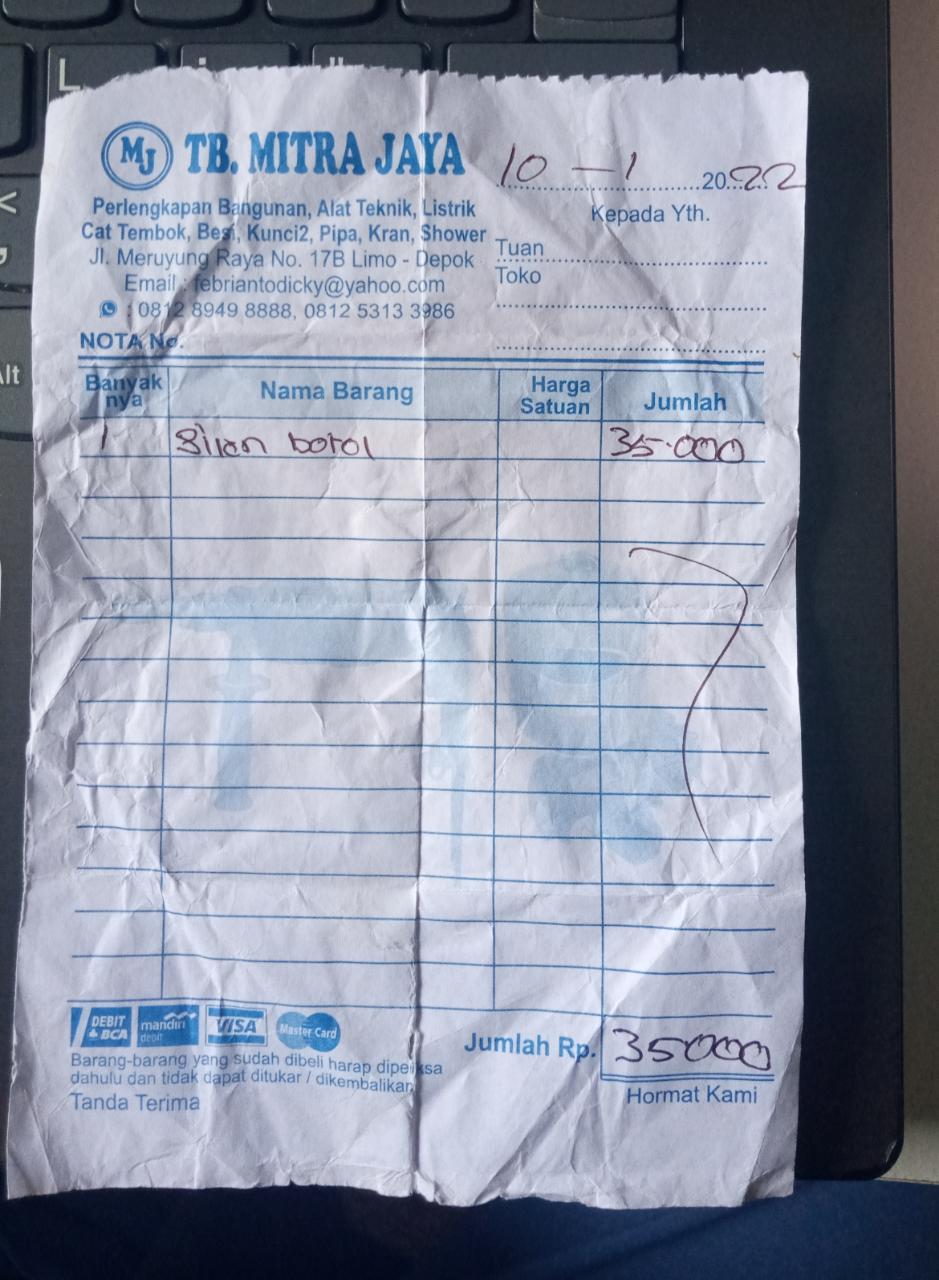 L
Alt
MJ TB. MITRA JAYA
Perlengkapan Bangunan, Alat Teknik, Listrik
Cat Tembok, Besi, Kunci2, Pipa, Kran, Shower
Jl. Meruyung Raya No. 17B Limo - Depok
Email : febriantodicky@yahoo.com
: 0812 8949 8888, 0812 5313 3986
NOTA No.
10 - 1 2022
Kepada Yth.
Tuan
Toko
Banyak nya Nama Barang Harga Satuan Jumlah
1 botol 35.000
DEBIT BCA mandiri debit VISA Master Card
Barang-barang yang sudah dibeli harap diperiksa
dahulu dan tidak dapat ditukar / dikembalikan
Tanda Terima
Jumlah Rp. 35000
Hormat Kami